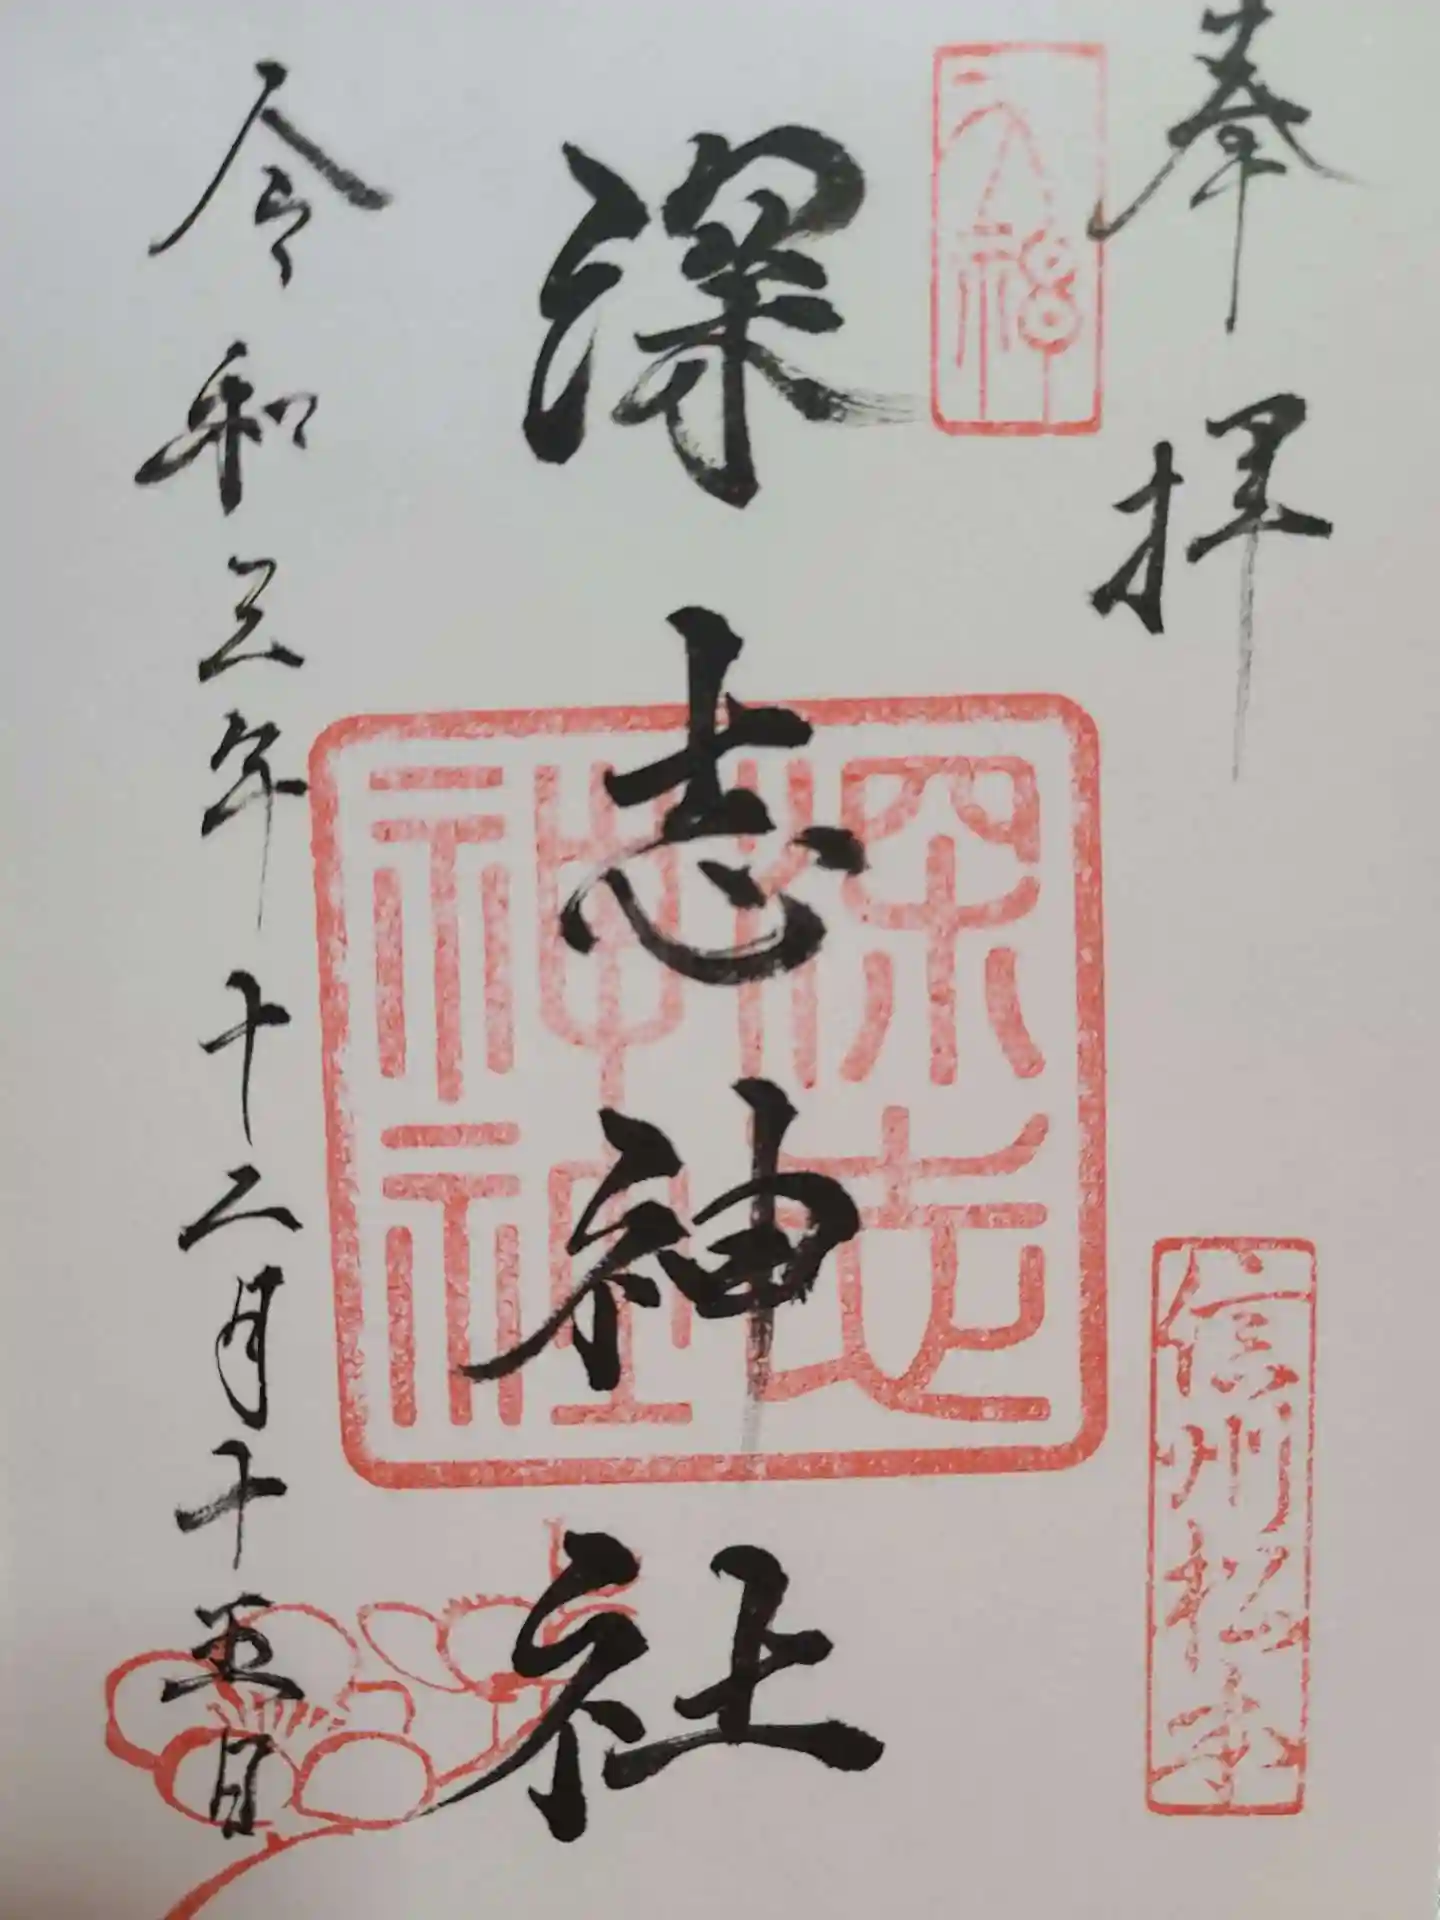 奉拝
天福
信州松本
深志神社
深志
神社
令和三年十二月十五日